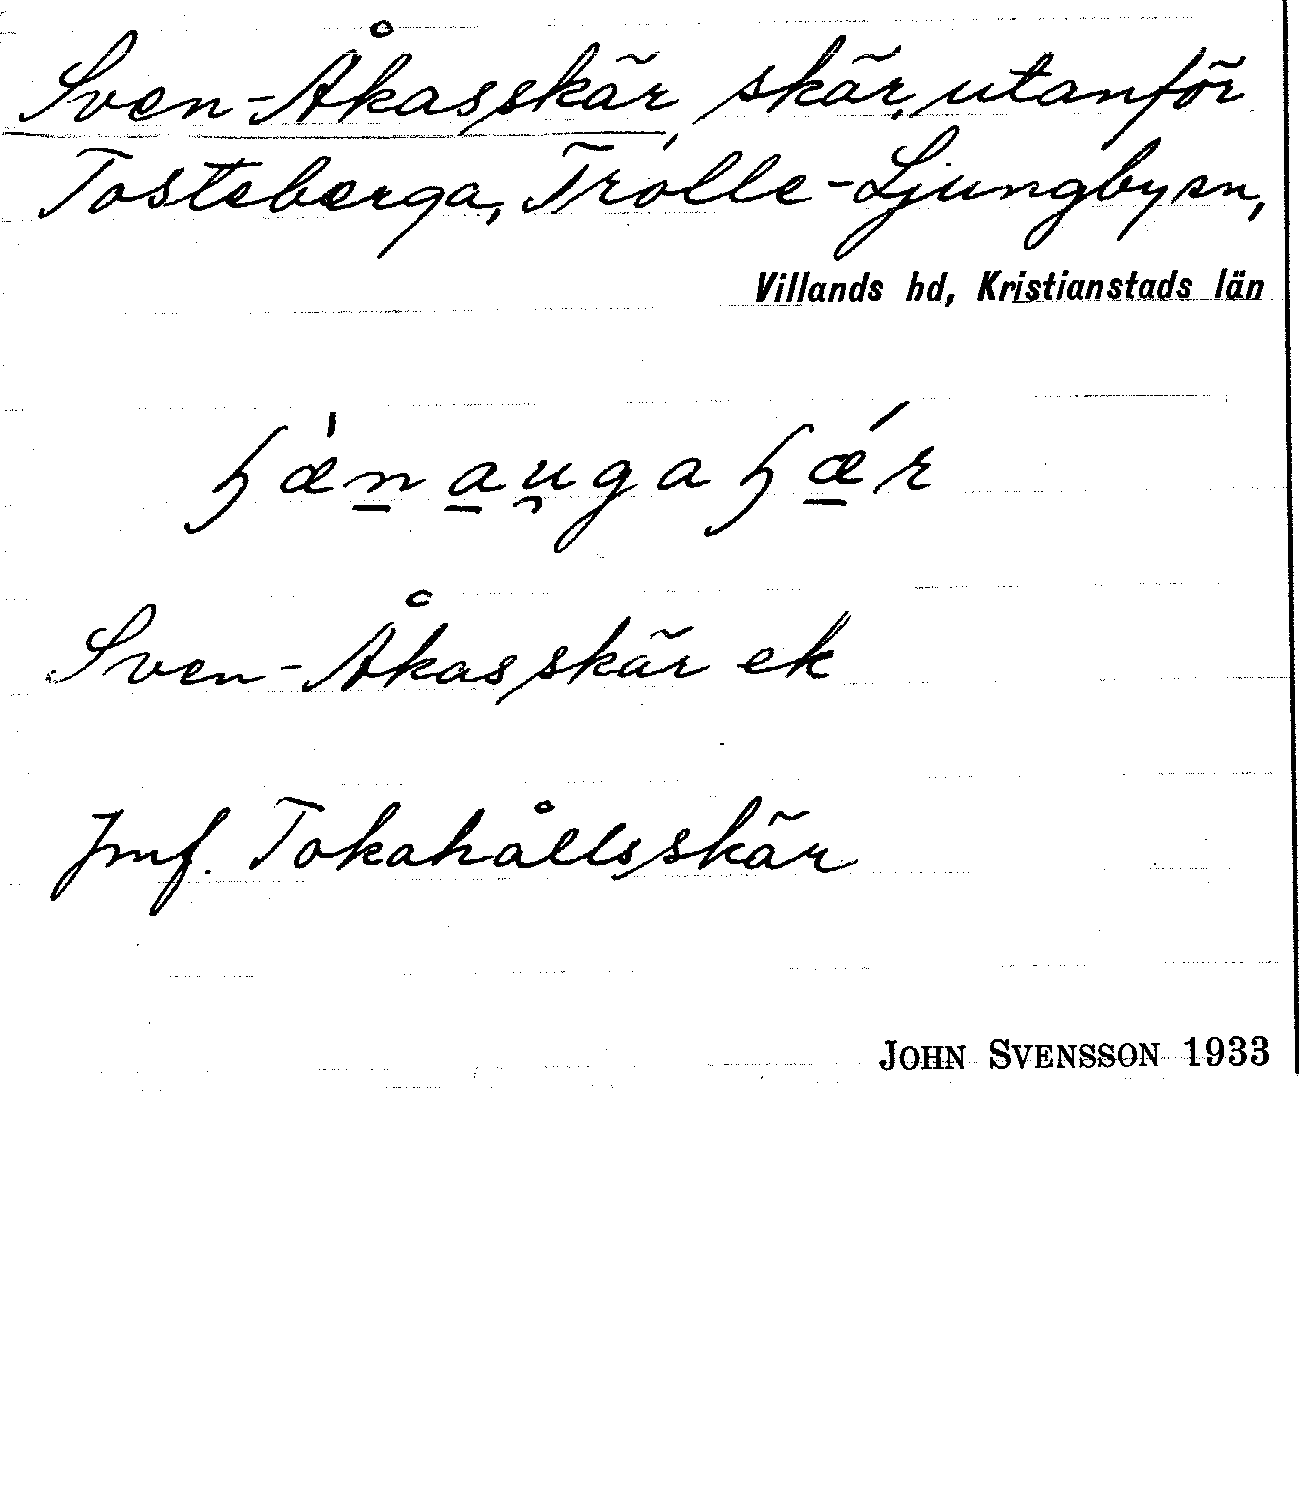 Sven-Åkasskär, skär, utanför
Tosteberga, Trolle-Ljungby sn,
Villands hd, Kristianstads län
Sven-Åkasskär ek
Jmf. Tokahållsskär
JOHN SVENSSON 1933